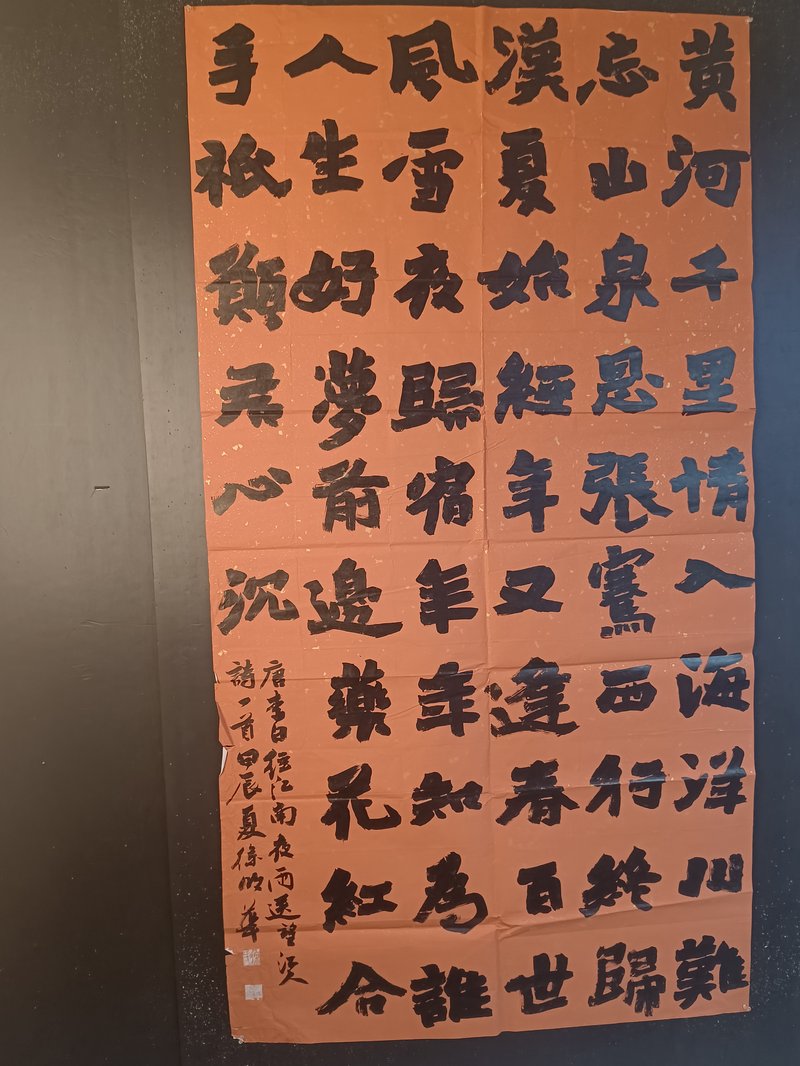 黃河千里情入海洋川難
忘山泉恩張騫西行終歸
漢夏始經年又逢春百世
風雪夜歸宿年年知為誰
人生好夢前邊藥花紅合
手祇願君心沉
唐李白往江南夜雨送
詩一首甲辰夏徐 華